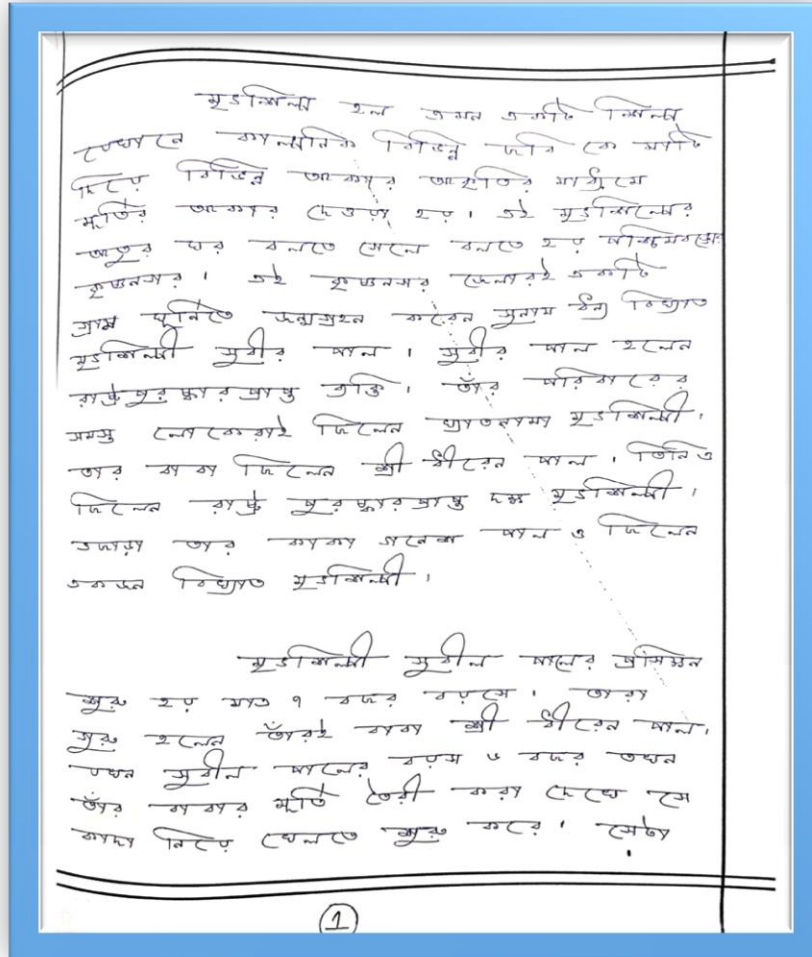 মৃৎশিল্প হল এমন একটি শিল্প
যেখানে কাল্পনিক বিভিন্ন ছবি কে মাটি
দিয়ে বিভিন্ন আকার আকৃতির মাধ্যমে
মূর্তির আকার দেওয়া হয়। এই মৃৎশিল্পের
আতুর ঘর বলতে গেলে বলতে হয় পশ্চিমবঙ্গের
কৃষ্ণনগর। এই কৃষ্ণনগর জেলারই একটি
গ্রাম ঘূর্নিতে জন্মগ্রহন করেন সুনাম ধন্য বিখ্যাত
মৃৎশিল্পী সুবীর পাল। সুবীর পাল হলেন
রাষ্ট্রপুরস্কারপ্রাপ্ত ব্যক্তি। তাঁর পরিবারের
সমস্ত লোকেরাই ছিলেন খ্যাতনামা মৃৎশিল্পী।
তার বাবা ছিলেন শ্রী বীরেন পাল। তিনিও
ছিলেন রাষ্ট্র পুরস্কারপ্রাপ্ত দক্ষ মৃৎশিল্পী।
এছাড়া তার কাকা গনেশ পাল ও ছিলেন
একজন বিখ্যাত মৃৎশিল্পী।
মৃৎশিল্পী সুবীল পালের প্রশিক্ষন
শুরু হয় মাত্র ৭ বছর বয়সে। তারা
গুরু হলেন তাঁরই বাবা শ্রী বীরেন পাল।
যখন সুবীল পালের বয়স ৬ বছর তখন
তাঁর বাবার মূর্তি তৈরী করা দেখে সে
কাদা নিয়ে খেলতে শুরু করে। সেটা
1